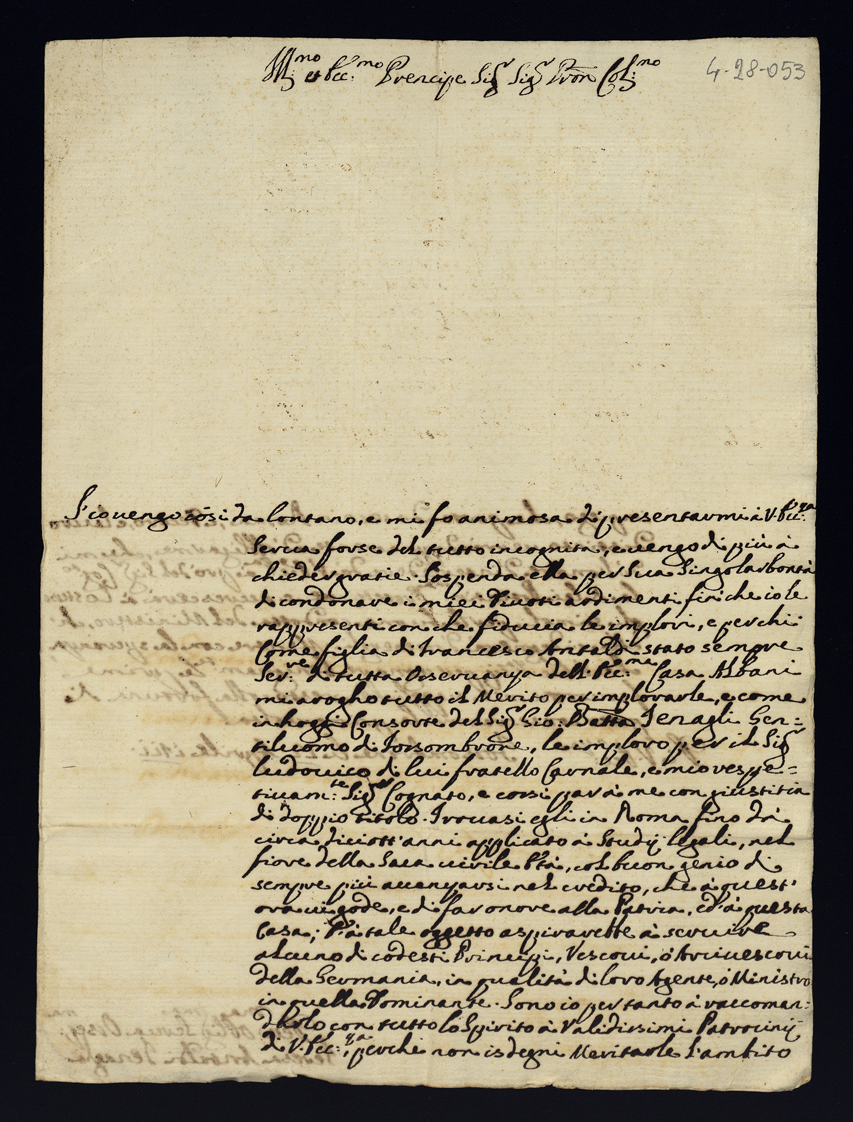 Ill:mo et Ecc:mo Prencipe Sig.r Sig.r Pron Col:mo
4-28-053
S'io uengo cosi da lontano, e mi fo animosa di presentarmi à V. Ecc:za
Serua forse del tutto incognita, e uengo di più à
chieder gratie. Sospenda ella per Sua Singolar bontà
di condonare i miei diuoti ardimenti fin che io le
rappresenti con che fiducia le implori, e perchi
Come figlia di Francesco Antaldi stato sempre
Ser:re di tutta osseruanza dell'Ecc:ma Casa Albani
mi arogho tutto il Merito per implorarle, e come
in hoggi Consorte del Sig.r Gio: Batta Tenagli Gen=
tiluomo di Forsombrone, le imploro per il Sig.r
Ludouico di lui fratello Carnale, e mio respe=
tiuam:te Sig.r Cognato, e cosi par à me con giustitia
di doppio titolo. Trouasi egli in Roma fino da
circa diciott'anni applicato à Studij legali, nel
fiore della Sua uirile Età, col buon genio di
sempre più auanzarsi nel credito, che à quest'
ora ui gode, e di far onore alla Patria, ed à questa
Casa; P. à tale oggetto aspirarebbe à seruire
alcuno di codesti Principi, Vescoui, ò Arciuescoui
della Germania, in qualità di loro Agente, ò Ministro
in quella Dominante. Sono io pertanto à raccoman=
darlo con tutto lo Spirito à Validissimi Patrocinij
di V. Ecc:za, perche non isdegni Meritarle l'ambito